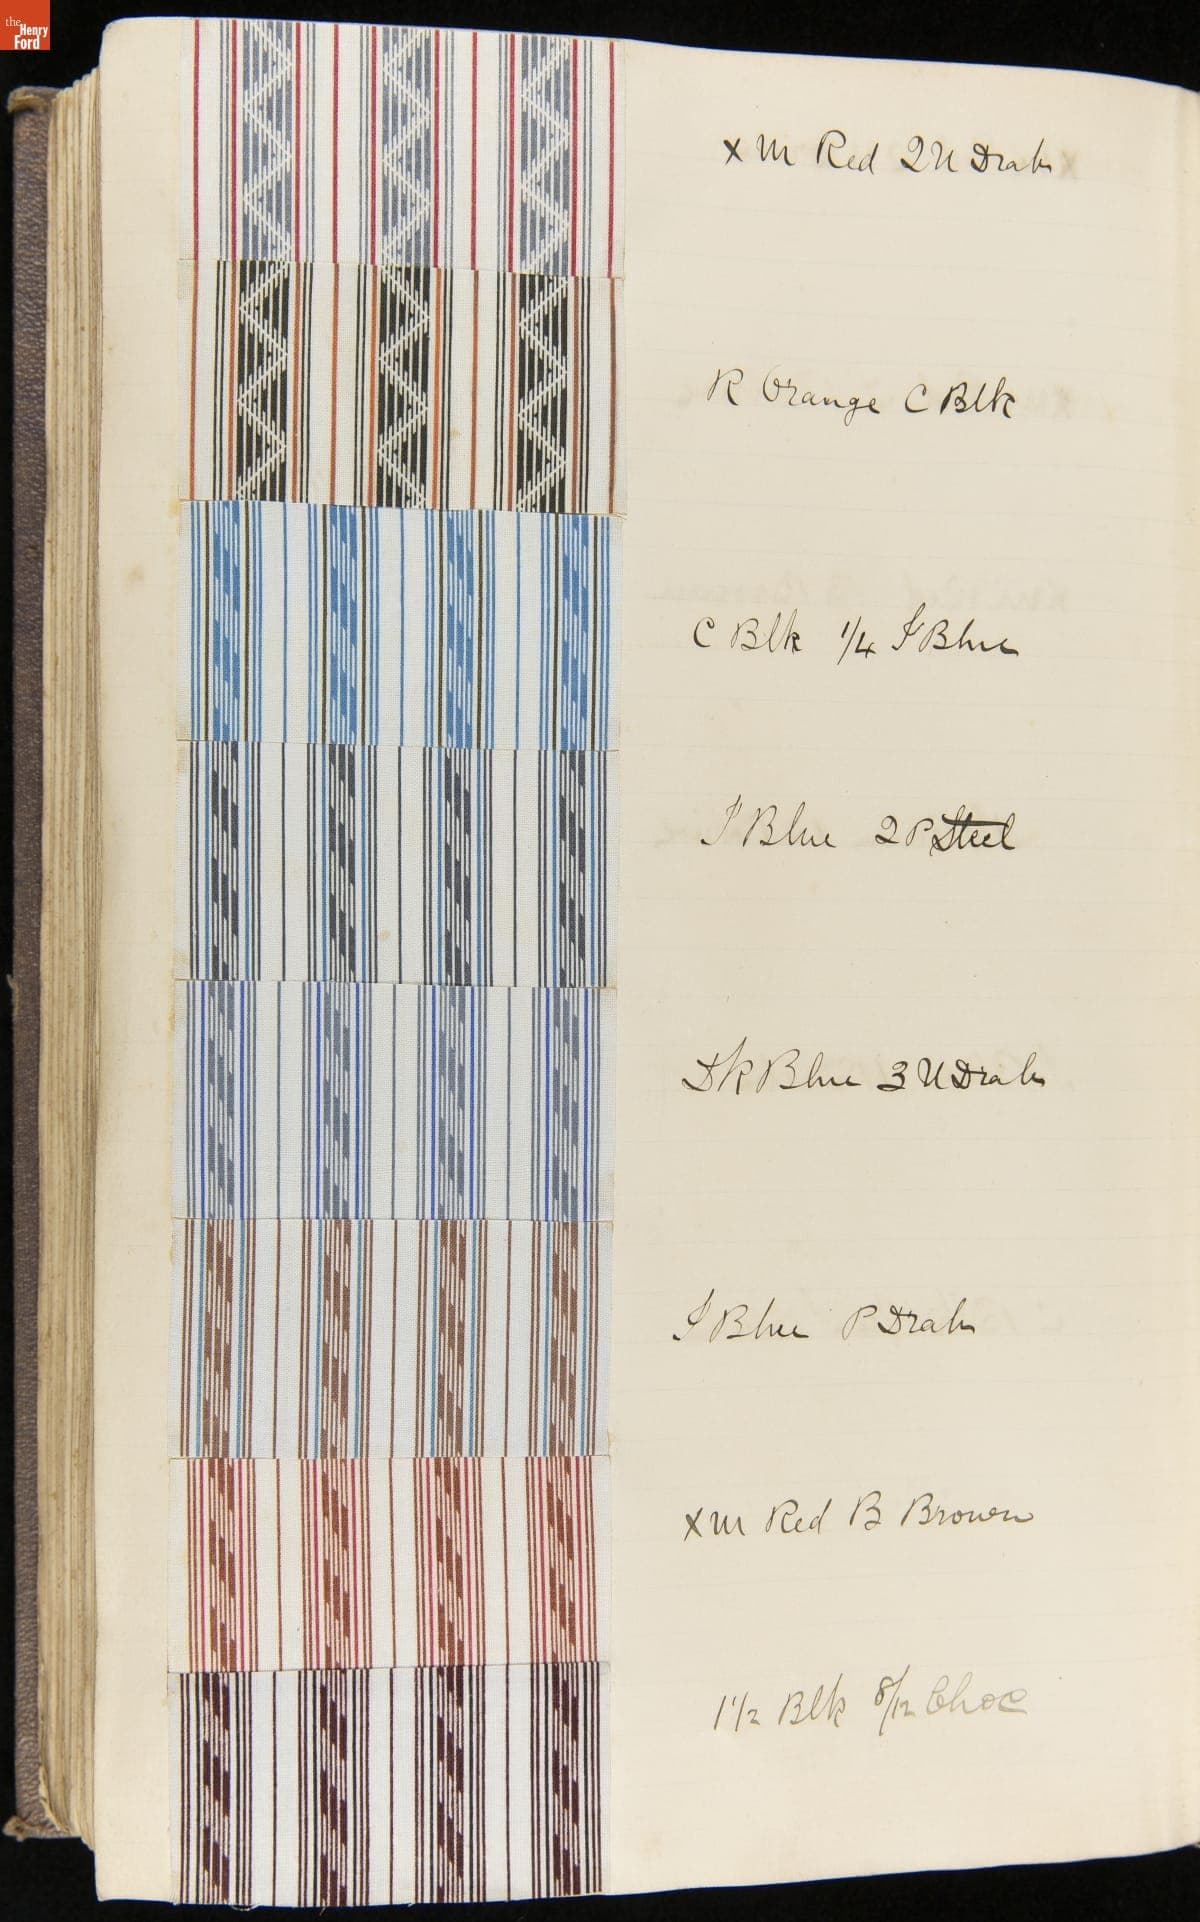 the
Henry
Ford
X M Red 2 U Drab
R Orange C Blk
C Blk 1/4 I Blue
I Blue 2 P Steel
Dk Blue 3 U Drab
I Blue P Drab
X M Red B Brown
1 1/2 Blk 8/12 Choc